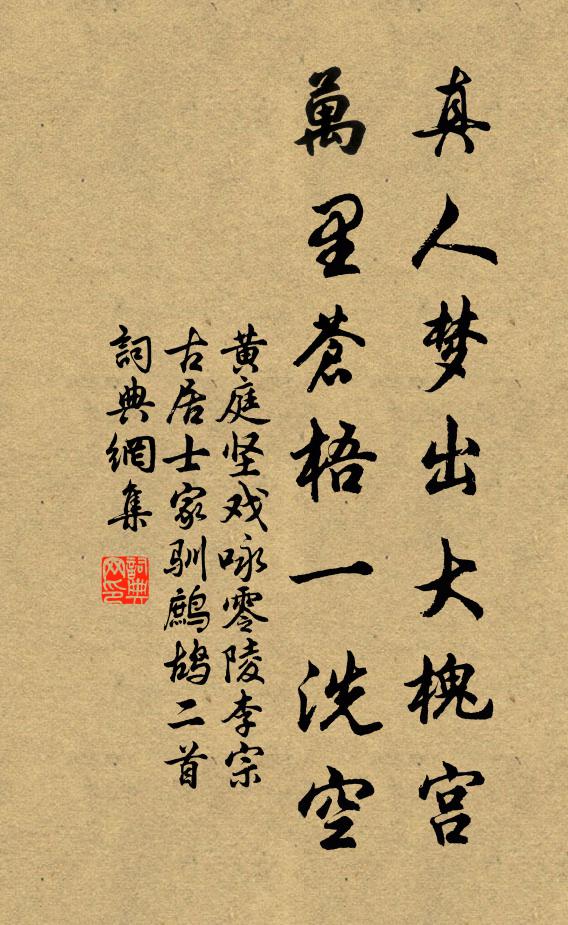 真人梦出大槐宫
萬里蒼梧一洗空
黄庭坚戏咏零陵李宗
古居士家驯鷓鴣二首
詞典網集
詞典
网印